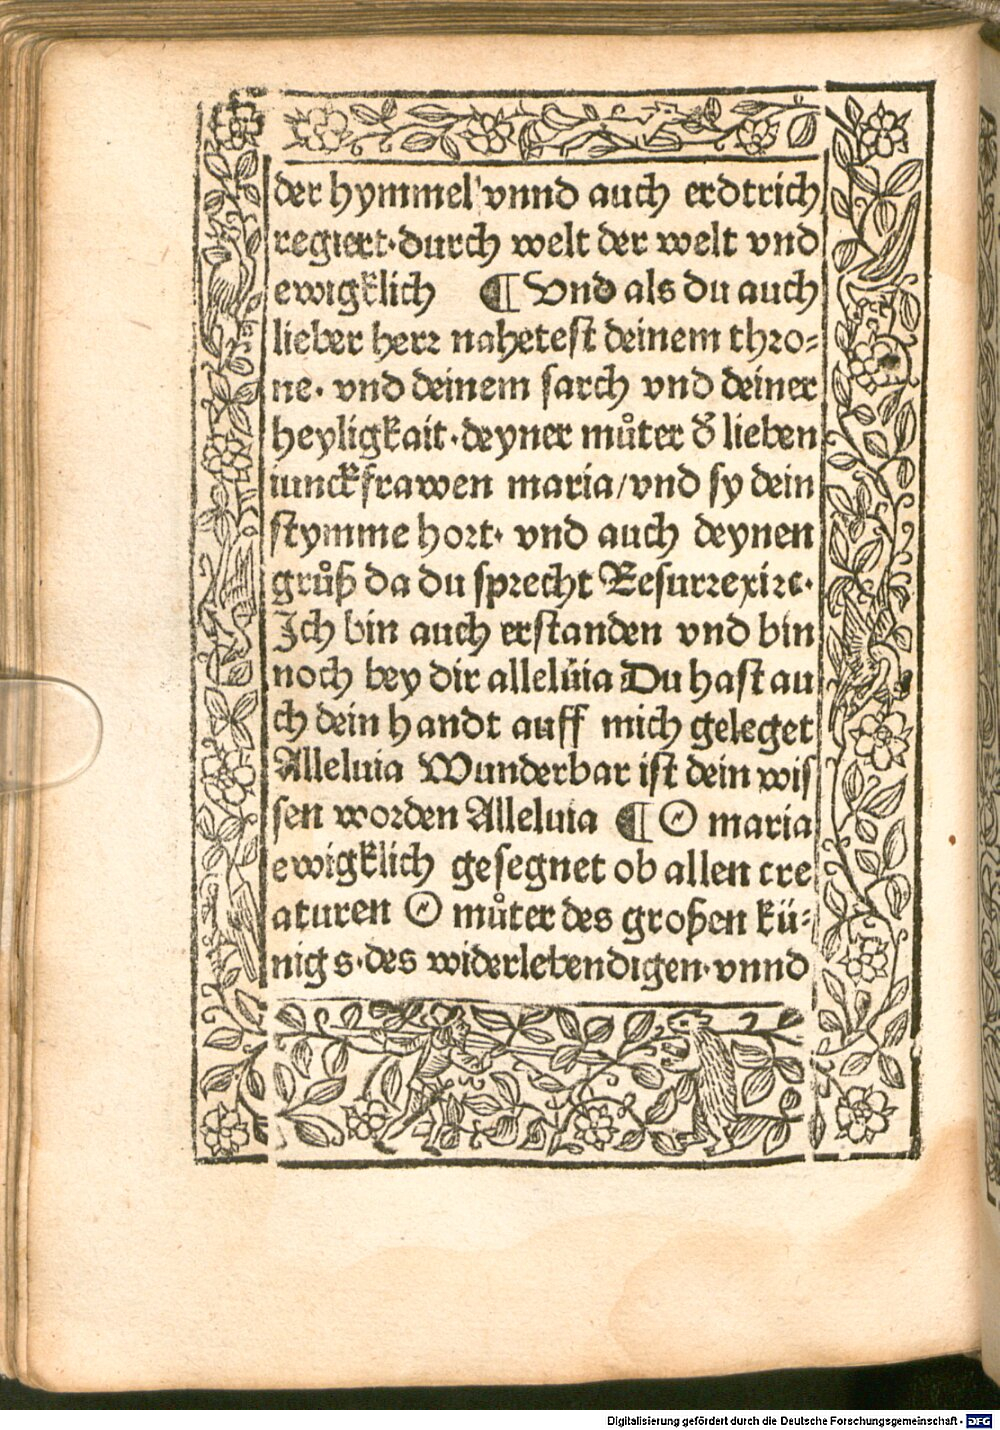 der hymmel vnnd auch erdtrich
regiert·durch welt der welt vnd
ewigklich ¶ Vnd als du auch
lieber herꝛ nahetest deinem thꝛo⸗
ne· vnd deinem sarch vnd deiner
heyligkait·deyner můter d̕ lieben
iunckfrawen maria/vnd sy dein
stymme hoꝛt· vnd auch deynen
grůß da du sprecht Resurrexire·
Ich bin auch erstanden vnd bin
noch bey dir alleluia Du hast au
ch dein handt auff mich geleget
Alleluia Wunderbar ist dein wis
sen woꝛden Alleluia ¶ O maria
ewigklich gesegnet ob allen cre
aturen O můter des großen kü⸗
nigs·des widerlebendigen·vnnd
Digitalisierung gefördert durch die Deutsche Forschungsgemeinschaft - DFG